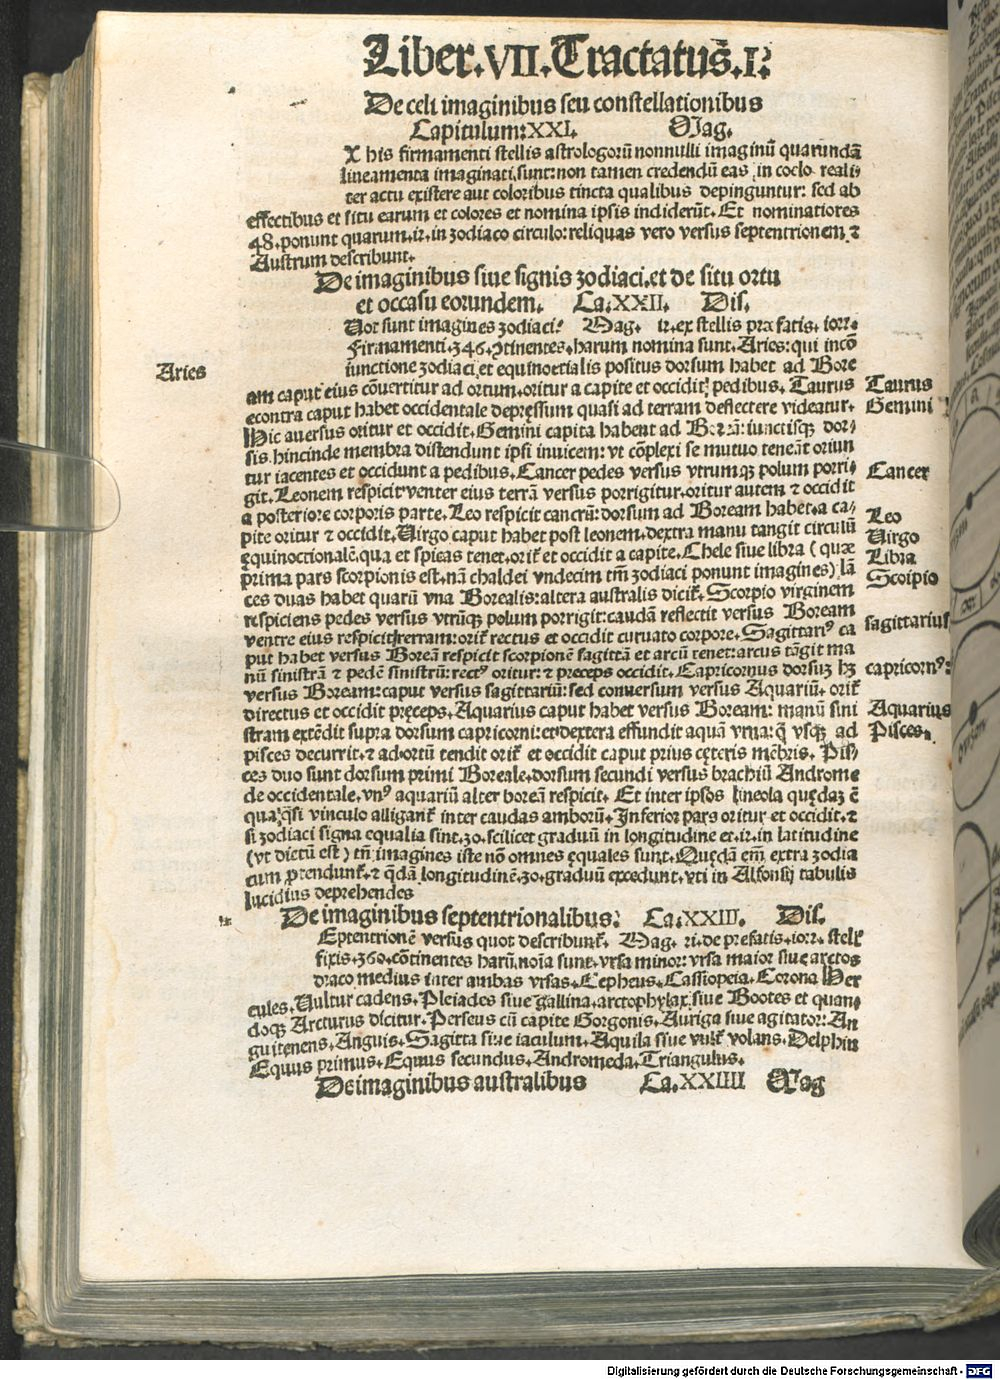 Liber.VII.Tractatus̄.I.
De celi imaginibus seu constellationibus
Capitulum:XXI. Mag.
X his firmamenti stellis astrologorū nonnulli imaginū quarundā
lineamenta imaginati,sunt:non tamen credendū eas in coelo reali-
ter actu existere aut coloribus tincta qualibus depinguntur: sed ab
effectibus et situ earum et colores et nomina ipsis indiderūt. Et nominatiores
48.ponunt quarum.ir.in zodiaco circulo:reliquas vero versus septentrionem ⁊
Austrum describunt.
De imaginibus siue signis zodiaci.et de situ ortu
et occasu eorundem. Ca.XXII. Dis.
Uot sunt imagines zodiaci? Mag. ir.ex stellis præfatis. iorr.
firmamenti.346.ꝯtinentes.harum nomina sunt. Aries: qui incō
iunctione zodiaci,et equinoctialis positus dorsum habet ad Bore
Aries
am caput eius cōuertitur ad ortum.oritur a capite et occidit pedibus. Taurus
Taurus
econtra caput habet occidentale depressum quasi ad terram deflectere videatur.
Gemini
Hic auersus oritur et occidit. Gemini capita habent ad Boreā: iunctisqꝫ dor-
sis hincinde membra distendunt ipsi inuicem: vt cōplexi se mutuo teneāt oriun
tur iacentes et occidunt a pedibus. Cancer pedes versus vtrumqꝫ polum porri-
Cancer
git. Leonem respicit:venter eius terrā versus porrigitur.oritur autem ⁊ occidit
a posteriore corporis parte. Leo respicit cancrū: dorsum ad Boream habet.a ca-
Leo
pite oritur ⁊ occidit. Uirgo caput habet post leonem.dextra manu tangit circulū
Uirgo
ęquinoctionalē.qua et spicas tenet.orit᷑ et occidit a capite. Chele siue libra (quæ
Libra
prima pars scorpionis est.nā chaldei vndecim tm̄ zodiaci ponunt imagines) lā
Scoipio
ces duas habet quarū vna Borealis:altera australis dicit᷑. Scorpio virginem
respiciens pedes versus vtrūqꝫ polum porrigit:caudā reflectit versus Boream
sagittarius
ventre eius respicit terram:orit᷑ rectus et occidit curuato corpore. Sagittariꝰ ca
put habet versus Boreā respicit scorpionē sagittā et arcū tenet:arcus tāgit ma
nū sinistrā ⁊ pedē sinistrū: rectꝰ oritur: ⁊ preceps occidit. Capricornus dorsuꝫ hꝫ
capricornꝰ:
versus Boream:caput versus sagittariū: sed conuersum versus Aquariū. orit᷑
directus et occidit pręceps. Aquarius caput habet versus Boream: manū sini
Aquarius
stram extēdit supra dorsum capricorni:et dextera effundit aquā vrna: q̄ vsqꝫ ad
Pisces.
pisces decurrit.et ad ortū tendit orit᷑ et occidit caput prius cęteris mēbris. Pis-
ces duo sunt dorsum primi Boreale.dorsum secundi versus brachiū Androme
de occidentale.vnꝰ aquariū alter boreā respicit. Et inter ipsos lineola quędaꝫ ē
qua q̄si vinculo alligant᷑ inter caudas amborū. Inferior pars oritur et occidit.⁊
si zodiaci signa equalia sint.30.scilicet graduū in longitudine et.ir.in latitudine
(vt dictū est) tn̄ imagines iste nō omnes ęquales sunt. Quędā em̄ extra zodia
cum ꝓtendunt᷑.⁊ q̄dā longitudinē.30.graduū excedunt.vti in Alfonsij tabulis
lucidius deprehendes
De imaginibus septentrionalibus: Ca:XXIII. Dis.
Eptentrionē versus quot describunt᷑. Mag. ri.de prefatis.iorr. stell᷑
fixis.360.cōtinentes harū,noīa sunt.vrsa minor: vrsa maior siue arctos
draco medius inter ambas vrsas.Cepheus.Cassiopeia.Corona Her
cules.Uultur cadens.Pleiades siue gallina.arctophylax.siue Bootes et quan-
doqꝫ Arcturus dicitur.Perseus cū capite Gorgonis.Auriga siue agitator: An
guitenens.Anguis.Sagitta siue iaculum.Aquila siue vult᷑ volans.Delphin
Equus primus.Equus secundus.Andromeda.Triangulus.
De imaginibus australibus Ca.XXIIII Mag
Digitalisierung gefördert durch die Deutsche Forschungsgemeinschaft - DFG